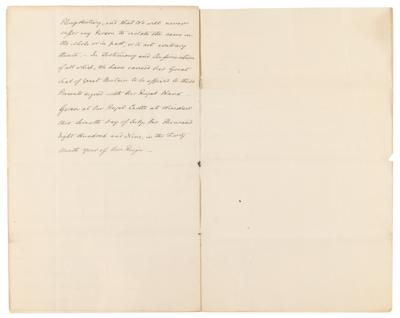 Plenipotentiary, and that We will never
suffer any Person to violate the same in
the whole or in part, or to act contrary
thereto. – In Testimony and Confirmation
of all which, We have caused Our Great
Seal of Great Britain to be affixed to these
Presents signed with Our Royal Hand –
Given at Our Royal Castle at Windsor
this Seventh Day of July, One Thousand
Eight Hundred and Nine, in the Forty
Ninth Year of Our Reign –